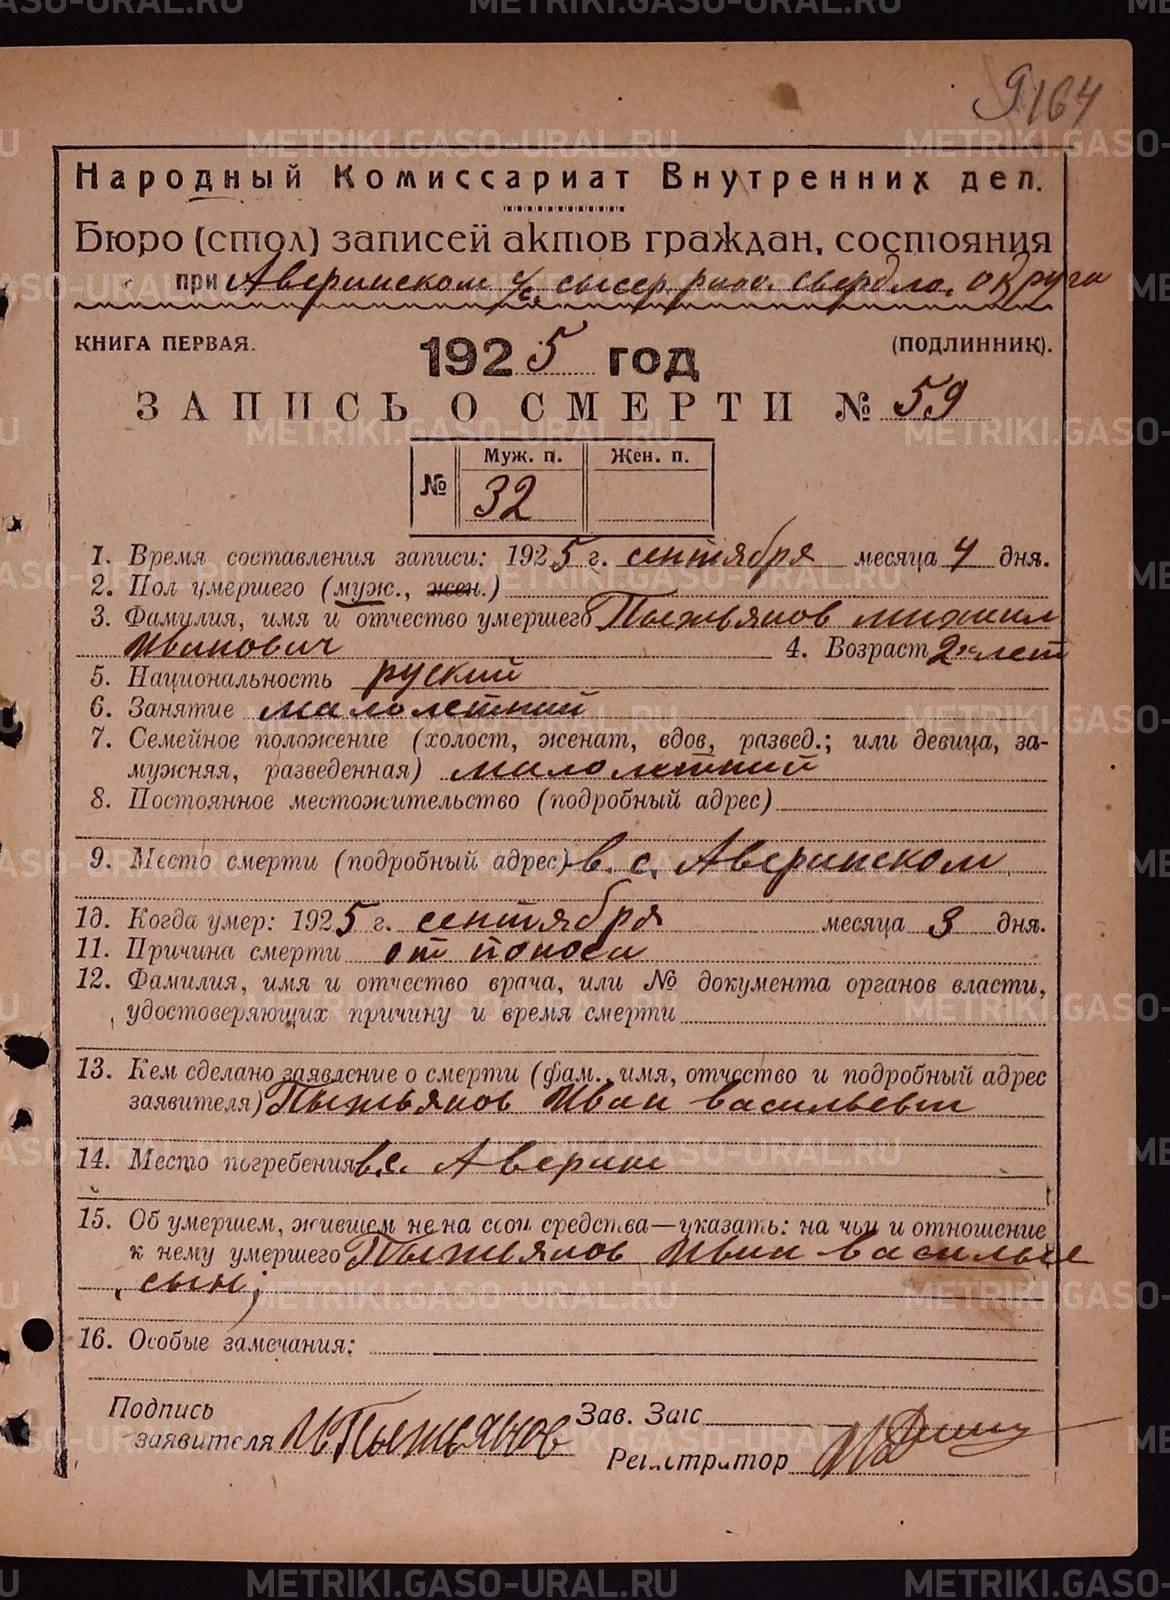 METRIKI.GASO-URAL.RU
164
Народный Комиссариат Внутренних дел.
Бюро (стол) записей актов граждан, состояния
при Аверинском с/с, сысер. райо. свердло. округа
КНИГА ПЕРВАЯ.
1925 год
(ПОДЛИННИК).
ЗАПИСЬ О СМЕРТИ № 59
№ Муж. п. Жен. п.
32
1. Время составления записи: 1925 г. сентября месяца 4 дня.
2. Пол умершего (муж., жен.)
3. Фамилия, имя и отчество умершего Пыжьянов михаил
Иванович 4. Возраст 2х лет
5. Национальность руский
6. Занятие малолетний
7. Семейное положение (холост, женат, вдов, развед.; или девица, за-
мужняя, разведенная) малолетний
8. Постоянное местожительство (подробный адрес)
9. Место смерти (подробный адрес) в. с. Аверинском
10. Когда умер: 1925 г. сентября месяца 3 дня.
11. Причина смерти от поноса
12. Фамилия, имя и отчество врача, или № документа органов власти,
удостоверяющих причину и время смерти
13. Кем сделано заявление о смерти (фам., имя, отчество и подробный адрес
заявителя) Пыжьянов Иван васильевич
14. Место погребения в с. Аверин
15. Об умершем, жившем не на свои средства—указать: на чьи и отношение
к нему умершего Пыжьянов Иван василье
сын;
16. Особые замечания:
Подпись
заявителя И Пыжьянов
Зав. Загс
Регистратор